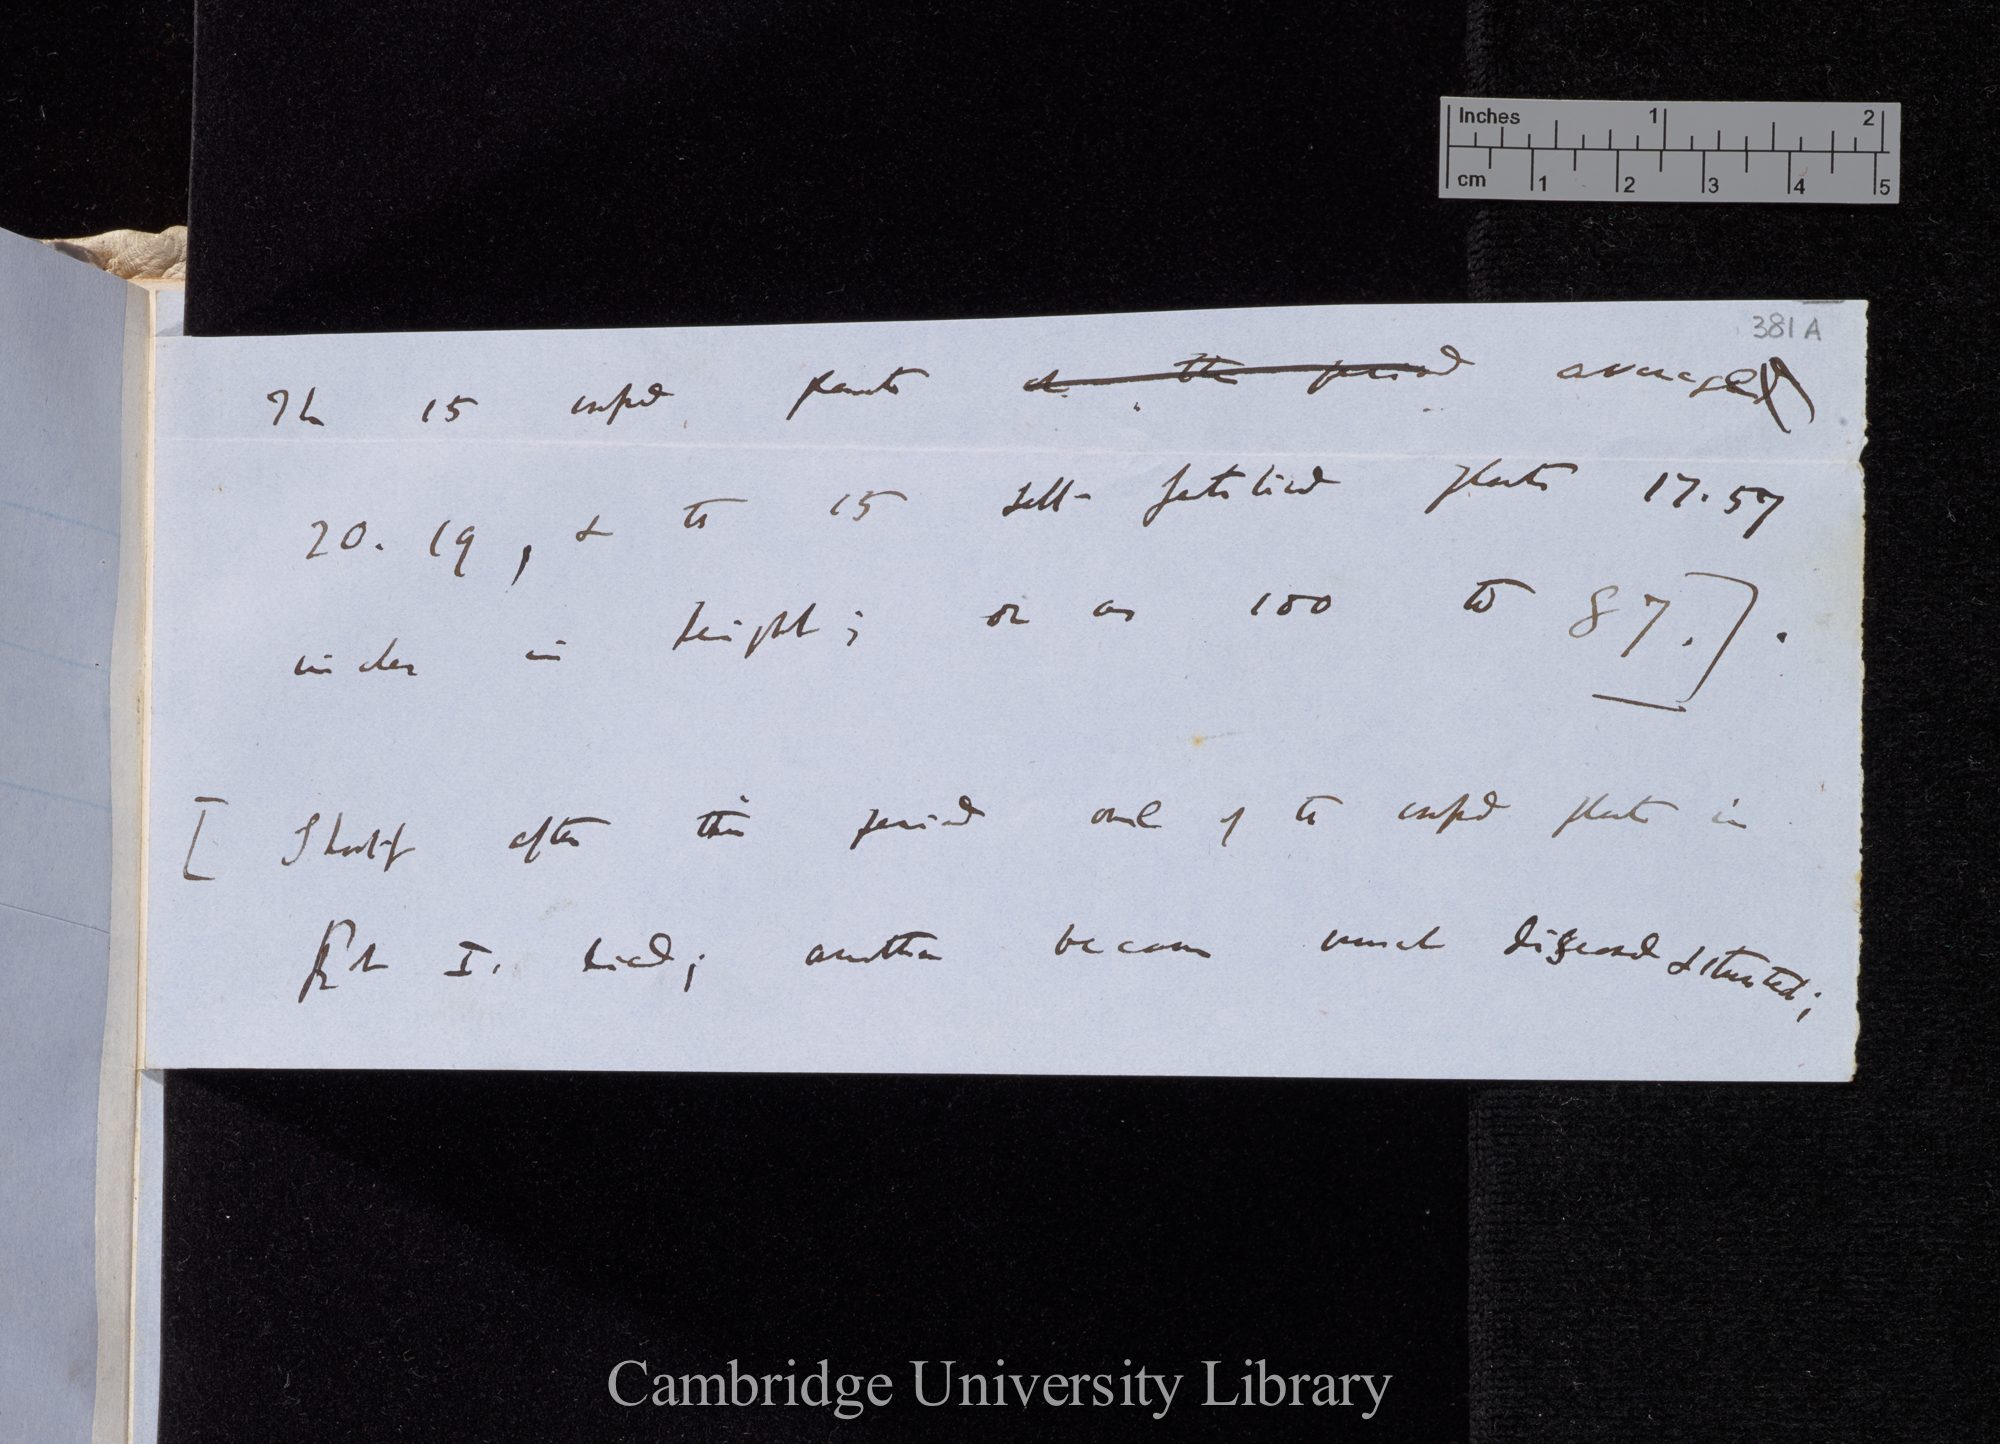 381 A
The 15 crossed plants at this period averaged
20.19, & the 15 self-fertilised plants 17.57
inches in height; or as 100 to 87.].
[Shortly after this period one of the crossed plants in
Pot I. died; another became much diseased & stunted;
Inches 1 2
cm 1 2 3 4 5
Cambridge University Library